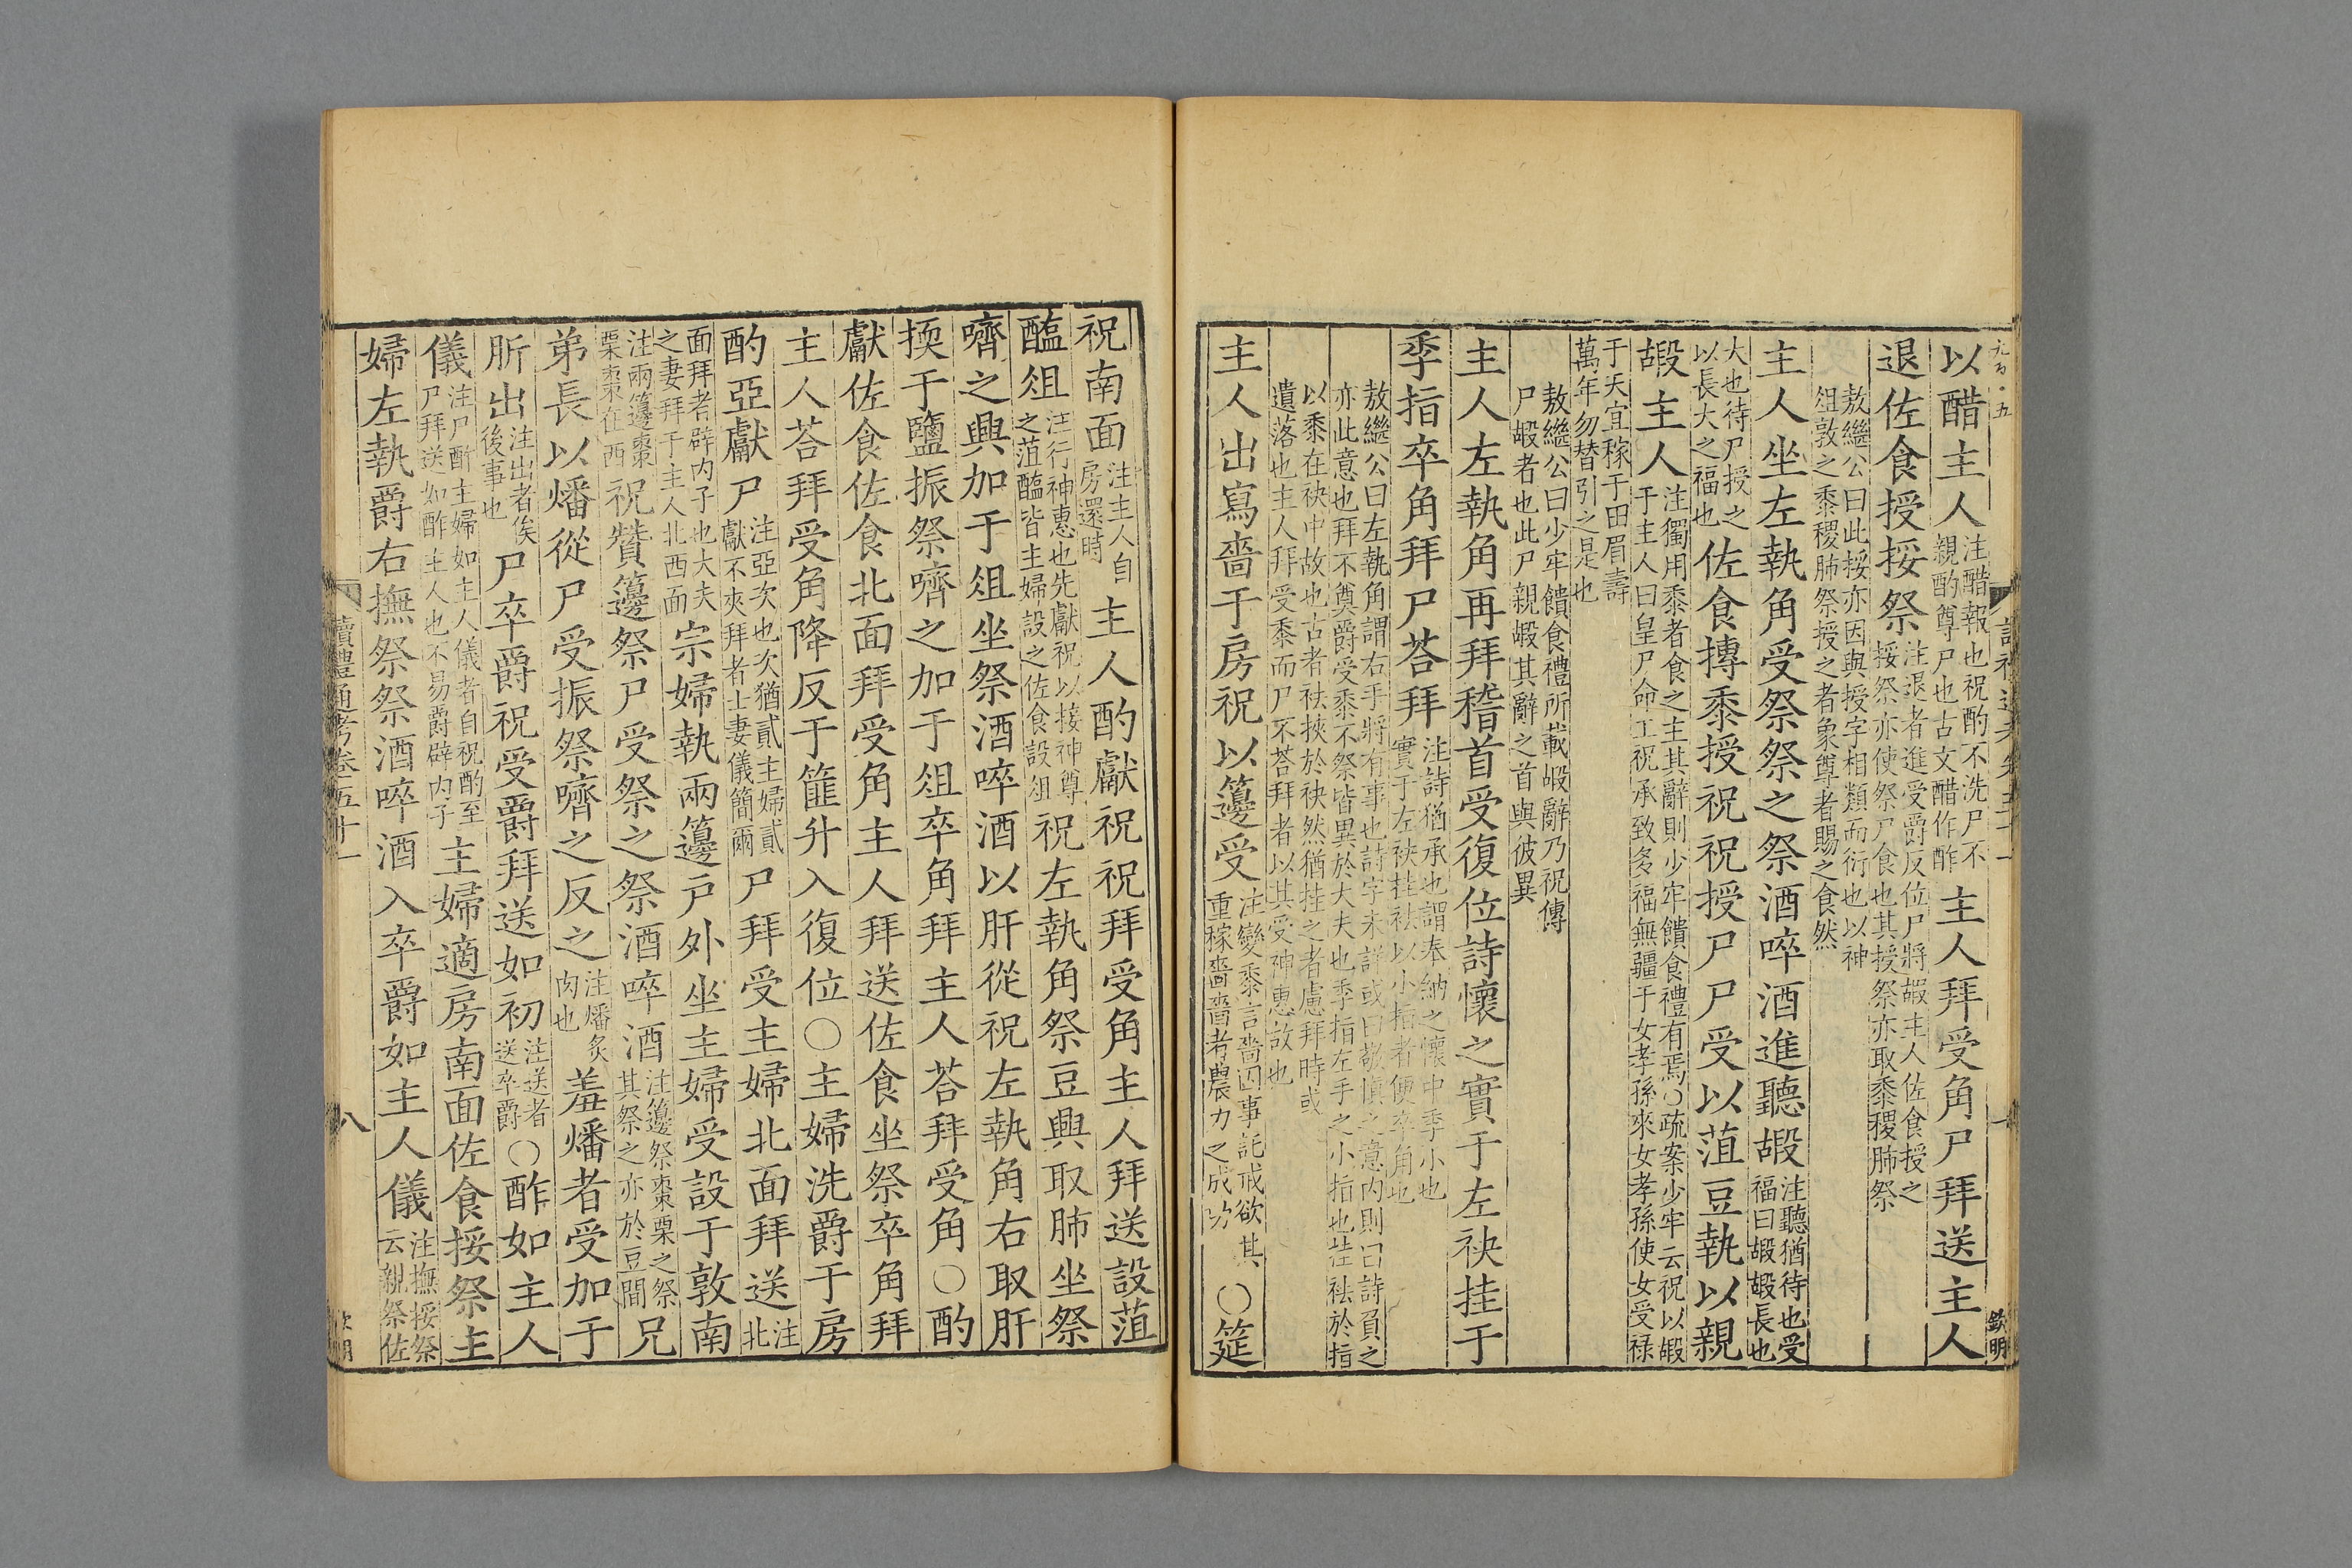 以醋主人注醋報也祝酌不洗尸不親酌尊尸也古文醋作酢主人拜受角尸拜送主人
退佐食授挼祭注退者進受爵反位尸將嘏主人佐食授之挼祭亦使祭尸食也其授祭亦取黍稷肺祭
敖繼公曰此挼亦因與授字相類而衍也以神俎敦之黍稷肺祭授之者象尊者賜之食然
主人坐左執角受祭祭之祭酒啐酒進聽嘏注聽猶待也受福曰嘏嘏長也
大也待尸授之以長大之福也佐食摶黍授祝祝授尸尸受以菹豆執以親
嘏主人注獨用黍者食之主其辭則少牢饋食禮有焉○疏案少牢云祝以嘏于主人曰皇尸命工祝承致多福無疆于女孝孫來女孝孫使女受祿
于天宜稼于田眉壽萬年勿替引之是也
敖繼公曰少牢饋食禮所載嘏辭乃祝傳尸嘏者也此尸親嘏其辭之首與彼異
主人左執角再拜稽首受復位詩懷之實于左袂挂于
季指卒角拜尸荅拜注詩猶承也謂奉納之懷中季小也實于左袂挂袪以小指者便卒角也
敖繼公曰左執角謂右手將有事也詩字未詳或曰敬慎之意內則曰詩負之亦此意也拜不奠爵受黍不祭皆異於大夫也季指左手之小指也挂袪於指
以黍在袂中故也古者袪狹於袂然猶挂之者慮拜時或遺落也主人拜受黍而尸不荅拜者以其受神惠故也
主人出寫嗇于房祝以籩受注變黍言嗇因事託戒欲其重稼嗇嗇者農力之成功○筵
祝南面注主人自房還時主人酌獻祝祝拜受角主人拜送設菹
醢俎注行神惠也先獻祝以接神尊之菹醢皆主婦設之佐食設俎祝左執角祭豆興取肺坐祭
嚌之興加于俎坐祭酒啐酒以肝從祝左執角右取肝
擩于鹽振祭嚌之加于俎卒角拜主人荅拜受角○酌
獻佐食佐食北面拜受角主人拜送佐食坐祭卒角拜
主人荅拜受角降反于篚升入復位○主婦洗爵于房
酌亞獻尸注亞次也次猶貳主婦貳獻不夾拜者士妻儀簡爾尸拜受主婦北面拜送注北
面拜者辟內子也大夫之妻拜于主人北西面宗婦執兩籩戶外坐主婦受設于敦南
注兩籩棗栗棗在西祝贊籩祭尸受祭之祭酒啐酒注籩祭棗栗之祭其祭之亦於豆間兄
弟長以燔從尸受振祭嚌之反之注燔炙肉也羞燔者受加于
肵出注出者俟後事也尸卒爵祝受爵拜送如初注送者送卒爵○酢如主人
儀注尸酢主婦如主人儀者自祝酌至尸拜送如酢主人也不易爵辟內子主婦適房南面佐食挼祭主
婦左執爵右撫祭祭酒啐酒入卒爵如主人儀注撫挼祭云親祭佐
讀禮通考卷五十一
八
欽明